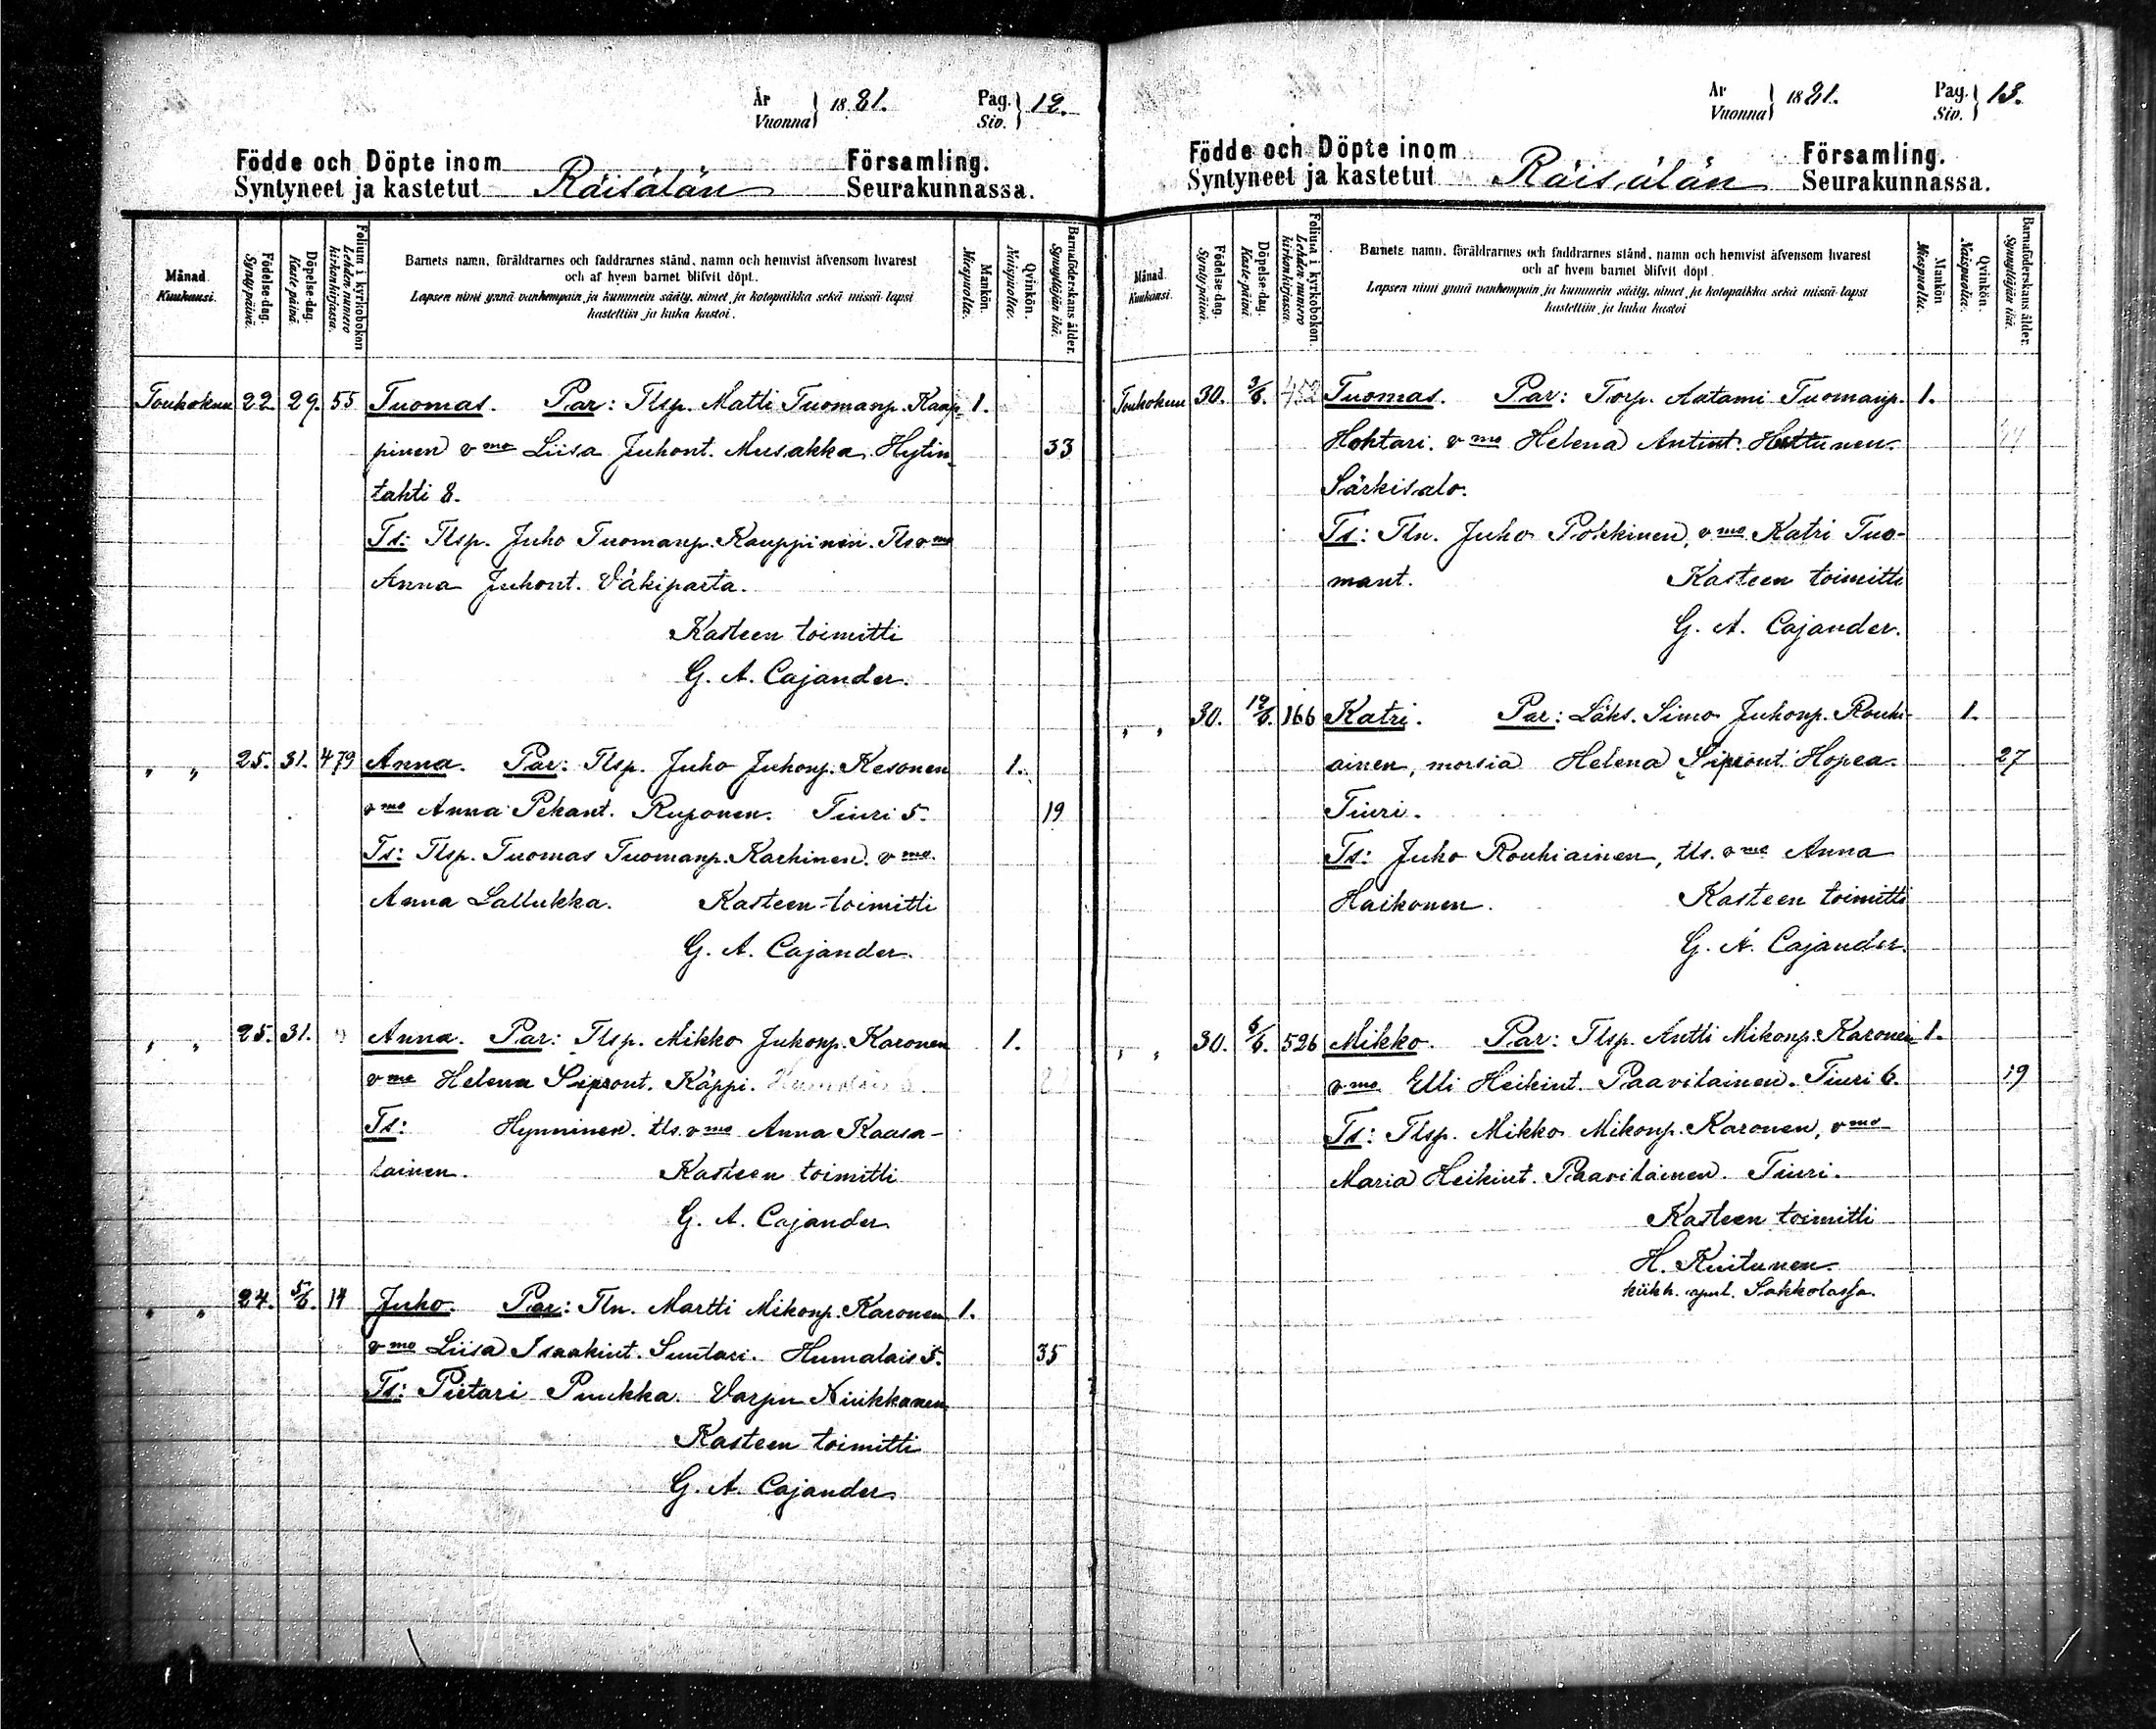 År
Vuonna } 1881. Pag.
Siv. } 12.
Födde och Döpte inom Församling.
Syntyneet ja kastetut Räisälän Seurakunnassa.
Månad.
Kuukausi.
Födelse-dag.
Syntypäivä.
Döpelse-dag.
Kaste-päivä
Folium i kyrkobokon
Lehden numero
kirkonkirjassa.
Barnets namn, föräldrarnes och faddrarnes stånd, namn och hemvist äfvensom hvarest
och af hvem barnet blifvit döpt.
Lapsen nimi ynnä vanhempain ja kummein sääty, nimet ja kotopaikka sekä missä lapsi
kastettiin ja kuka kastoi.
Mankön.
Miespuolia.
Qvinkön.
Naispuolia.
Barnaföderskans ålder.
Synnyttäjän ikä.
Toukokuu 22 29. 55 Tuomas. Par: Tlsp. Matti Tuomanp. Kaup- 1.
pinen vmo Liisa Juhont. Musakka. Hytin- 33
lahti 8.
Ts: Tlsp. Juho Tuomanp. Kauppinen. Tls vmo
Anna Juhont. Väkiparta.
Kasteen toimitti
G. A. Cajander.
" " 25. 31. 479 Anna. Par: Tlsp. Juho Juhonp. Kesonen 1.
vmo Anna Pekant. Ruponen. Tiuri 5. 19
Ts: Tlsp. Tuomas Tuomanp. Karhinen. vmo.
Anna Lallukka. Kasteen toimitti
G. A. Cajander.
" " 25. 31. Anna. Par: Tlsp. Mikko Juhonp. Karonen 1.
vmo Helena Sipront. Käppi.
Ts: Hynninen. tls. vmo Anna Kaasa-
lainen. Kasteen toimitti
G. A. Cajander
" " 24. 5/6. 14 Juho. Par: Tln. Martti Mikonp. Karonen 1.
vmo Liisa Isaakint. Suutari. Humalais 5. 35
Ts: Pietari Puukka. Varpu Niukkanen
Kasteen toimitti
G. A. Cajander.
År
Vuonna } 1881. Pag.
Siv. } 13.
Födde och Döpte inom Församling.
Syntyneet ja kastetut Räisälän Seurakunnassa.
Månad.
Kuukausi.
Födelse-dag.
Syntypäivä.
Döpelse-dag.
Kaste-päivä
Folium i kyrkobokon.
Lehden numero
kirkonkirjassa.
Barnets namn, föräldrarnes och faddrarnes stånd, namn och hemvist äfvensom hvarest
och af hvem barnet blifvit döpt.
Lapsen nimi ynnä vanhempain ja kummein sääty, nimet ja kotopaikka sekä missä lapsi
kastettiin ja kuka kastoi
Mankön
Miespuolia.
Qvinkön.
Naispuolia.
Barnaföderskans ålder.
Synnyttäjän ikä.
Toukokuu 30. 3/6. 452 Tuomas. Par: Torp. Aatami Tuomanp. 1.
Hohtari. vmo Helena Antint. Huttunen.
Särkisalo.
Ts: Tln. Juho Pölkkinen, vmo Katri Tuo-
mant. Kasteen toimitti
G. A. Cajander.
" " 30. 12/6. 166 Katri. Par: Läks. Simo Juhonp. Rouhi- 1.
ainen, morsia Helena Sipront. Hopea. 27
Tiuri.
Ts: Juho Rouhiainen, tls. vmo Anna
Haikonen. Kasteen toimitti
G. A. Cajander.
" " 30. 6/6. 526 Mikko. Par: Tlsp. Antti Mikonp. Karonen 1.
vmo Elli Heikint. Paavilainen. Tiuri 6. 19
Ts: Tlsp. Mikko Mikonp. Karonen, vmo
Maria Heikint. Paavilainen. Tiuri.
Kasteen toimitti
H. Kuitunen.
kirkh. apul. Sakkolassa.